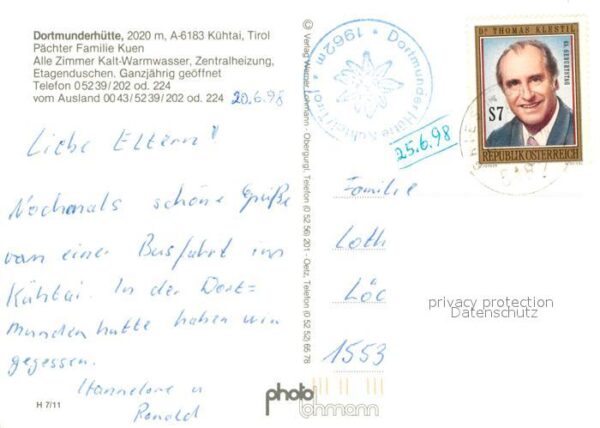 Dortmunderhütte, 2020 m, A-6183 Kühtai, Tirol
Pächter Familie Kuen
Alle Zimmer Kalt-Warmwasser, Zentralheizung,
Etagenduschen. Ganzjährig geöffnet
Telefon 05239/202 od. 224
vom Ausland 0043/5239/202 od. 224
20.6.98
Liebe Eltern!
Nochmals schöne Grüße
von einer Busfahrt ins
Kühtai. In der Dort=
munderhütte haben wir
gegessen.
Hannelore u
Ronald
H 7/11
© Verlag Werner Lohmann - Obergurgl, Telefon (0 52 56) 201 - Oetz, Telefon (0 52 52) 66 78
Dortmunder Hütte Kühtai/Tirol * 1962m *
25.6.98
Dr THOMAS KLESTIL
65. GEBURTSTAG
S7
REPUBLIK ÖSTERREICH
Familie
Loth
Löc
1553
privacy protection
Datenschutz
photo
lohmann